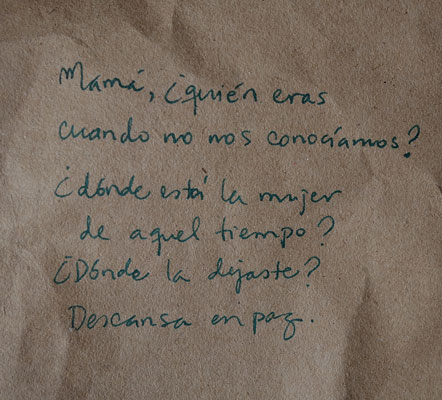 Mamá, ¿quién eras
cuando no nos conocíamos?
¿dónde está la mujer
de aquel tiempo?
¿Dónde la dejaste?
Descansa en paz.